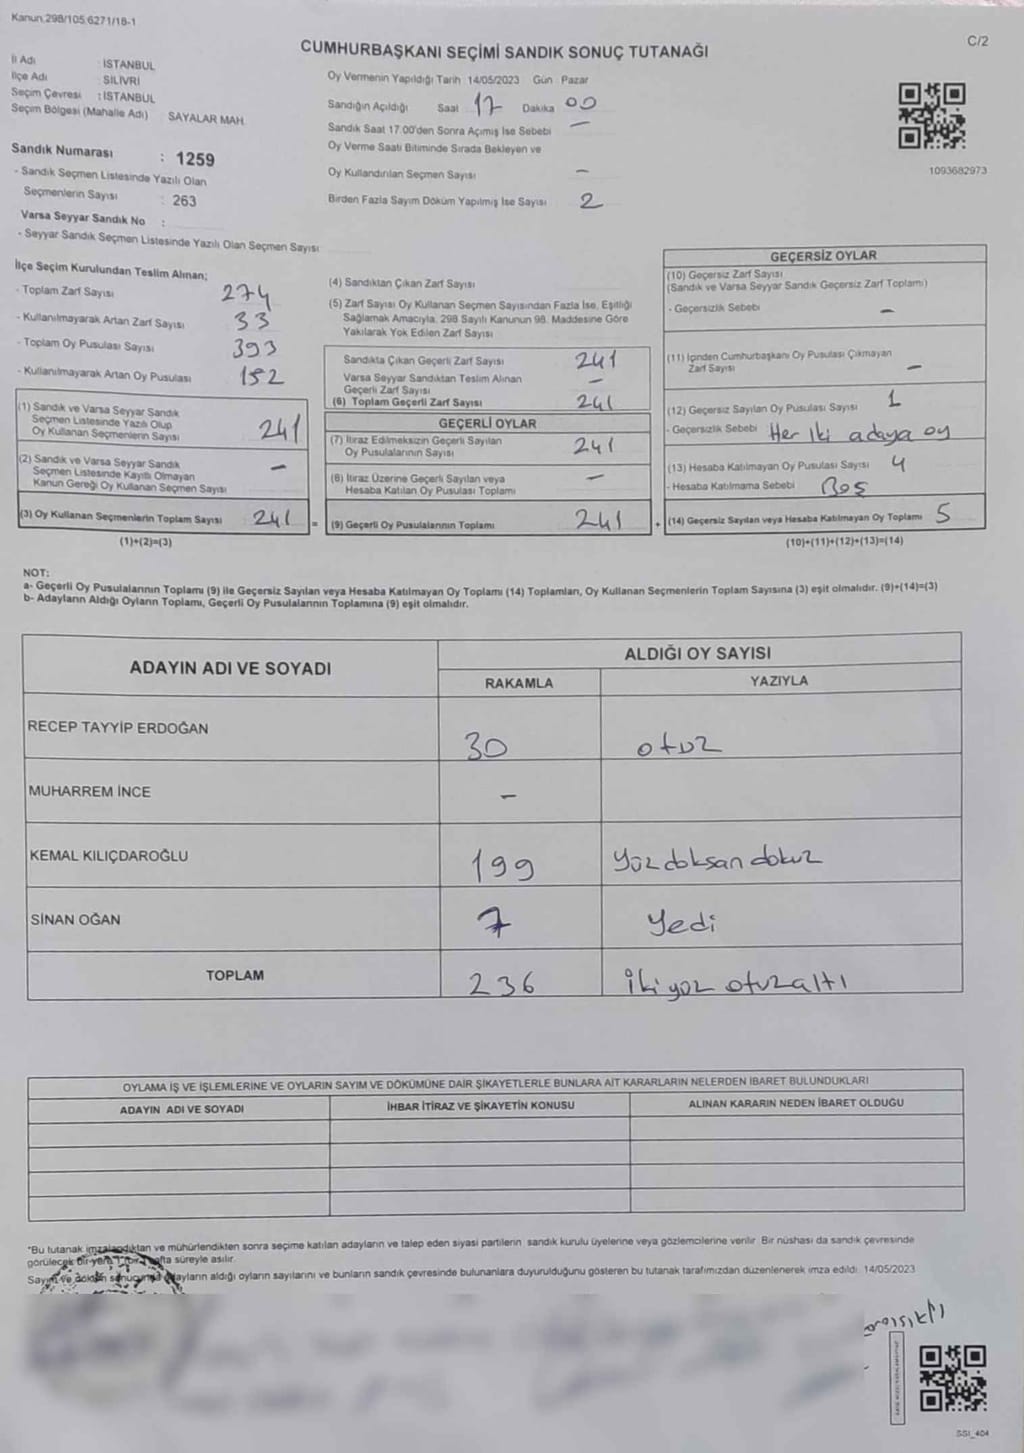 Kanun,298/105,6271/18-1
C/2
CUMHURBAŞKANI SEÇİMİ SANDIK SONUÇ TUTANAĞI
İl Adı : İSTANBUL
İlçe Adı : SİLİVRİ
Seçim Çevresi : İSTANBUL
Seçim Bölgesi (Mahalle Adı) SAYALAR MAH.
Sandık Numarası : 1259
- Sandık Seçmen Listesinde Yazılı Olan
Seçmenlerin Sayısı : 263
Varsa Seyyar Sandık No :
- Seyyar Sandık Seçmen Listesinde Yazılı Olan Seçmen Sayısı
Oy Vermenin Yapıldığı Tarih 14/05/2023 Gün Pazar
Sandığın Açıldığı Saat 17 Dakika 00
Sandık Saat 17.00'den Sonra Açımış İse Sebebi —
Oy Verme Saati Bitiminde Sırada Bekleyen ve
Oy Kullandırılan Seçmen Sayısı —
Birden Fazla Sayım Döküm Yapılmış İse Sayısı 2
1093682973
İlçe Seçim Kurulundan Teslim Alınan;
- Toplam Zarf Sayısı 274
- Kullanılmayarak Artan Zarf Sayısı 33
- Toplam Oy Pusulası Sayısı 393
- Kullanılmayarak Artan Oy Pusulası 152
(1) Sandık ve Varsa Seyyar Sandık
Seçmen Listesinde Yazılı Olup
Oy Kullanan Seçmenlerin Sayısı 241
(2) Sandık ve Varsa Seyyar Sandık
Seçmen Listesinde Kayıtlı Olmayan
Kanun Gereği Oy Kullanan Seçmen Sayısı —
(3) Oy Kullanan Seçmenlerin Toplam Sayısı 241 =
(1)+(2)=(3)
(4) Sandıktan Çıkan Zarf Sayısı
(5) Zarf Sayısı Oy Kullanan Seçmen Sayısından Fazla İse, Eşitliği
Sağlamak Amacıyla, 298 Sayılı Kanunun 98. Maddesine Göre
Yakılarak Yok Edilen Zarf Sayısı
Sandıkta Çıkan Geçerli Zarf Sayısı 241
Varsa Seyyar Sandıktan Teslim Alınan
Geçerli Zarf Sayısı —
(6) Toplam Geçerli Zarf Sayısı 241
GEÇERLİ OYLAR
(7) İtiraz Edilmeksizin Geçerli Sayılan
Oy Pusulalarının Sayısı 241
(8) İtiraz Üzerine Geçerli Sayılan veya
Hesaba Katılan Oy Pusulası Toplamı —
(9) Geçerli Oy Pusulalarının Toplamı 241 +
GEÇERSİZ OYLAR
(10) Geçersiz Zarf Sayısı
(Sandık ve Varsa Seyyar Sandık Geçersiz Zarf Toplamı)
- Geçersizlik Sebebi —
(11) İçinden Cumhurbaşkanı Oy Pusulası Çıkmayan
Zarf Sayısı —
(12) Geçersiz Sayılan Oy Pusulası Sayısı 1
- Geçersizlik Sebebi Her iki adaya oy
(13) Hesaba Katılmayan Oy Pusulası Sayısı 4
- Hesaba Katılmama Sebebi Boş
(14) Geçersiz Sayılan veya Hesaba Katılmayan Oy Toplamı 5
(10)+(11)+(12)+(13)=(14)
NOT:
a- Geçerli Oy Pusulalarının Toplamı (9) ile Geçersiz Sayılan veya Hesaba Katılmayan Oy Toplamı (14) Toplamları, Oy Kullanan Seçmenlerin Toplam Sayısına (3) eşit olmalıdır. (9)+(14)=(3)
b- Adayların Aldığı Oyların Toplamı, Geçerli Oy Pusulalarının Toplamına (9) eşit olmalıdır.
ADAYIN ADI VE SOYADI ALDIĞI OY SAYISI
RAKAMLA YAZIYLA
RECEP TAYYİP ERDOĞAN 30 otuz
MUHARREM İNCE —
KEMAL KILIÇDAROĞLU 199 Yüzdoksandokuz
SİNAN OĞAN 7 Yedi
TOPLAM 236 İkiyüzotuzaltı
OYLAMA İŞ VE İŞLEMLERİNE VE OYLARIN SAYIM VE DÖKÜMÜNE DAİR ŞİKAYETLERLE BUNLARA AİT KARARLARIN NELERDEN İBARET BULUNDUKLARI
ADAYIN ADI VE SOYADI İHBAR İTİRAZ VE ŞİKAYETİN KONUSU ALINAN KARARIN NEDEN İBARET OLDUĞU
*Bu tutanak imzalandıktan ve mühürlendikten sonra seçime katılan adayların ve talep eden siyasi partilerin sandık kurulu üyelerine veya gözlemcilerine verilir. Bir nüshası da sandık çevresinde
görülecek bir yere 1 bir hafta süreyle asılır.
Sayım ve döküm sonucunda adayların aldığı oyların sayılarını ve bunların sandık çevresinde bulunanlara duyurulduğunu gösteren bu tutanak tarafımızdan düzenlenerek imza edildi. 14/05/2023
SSI_404